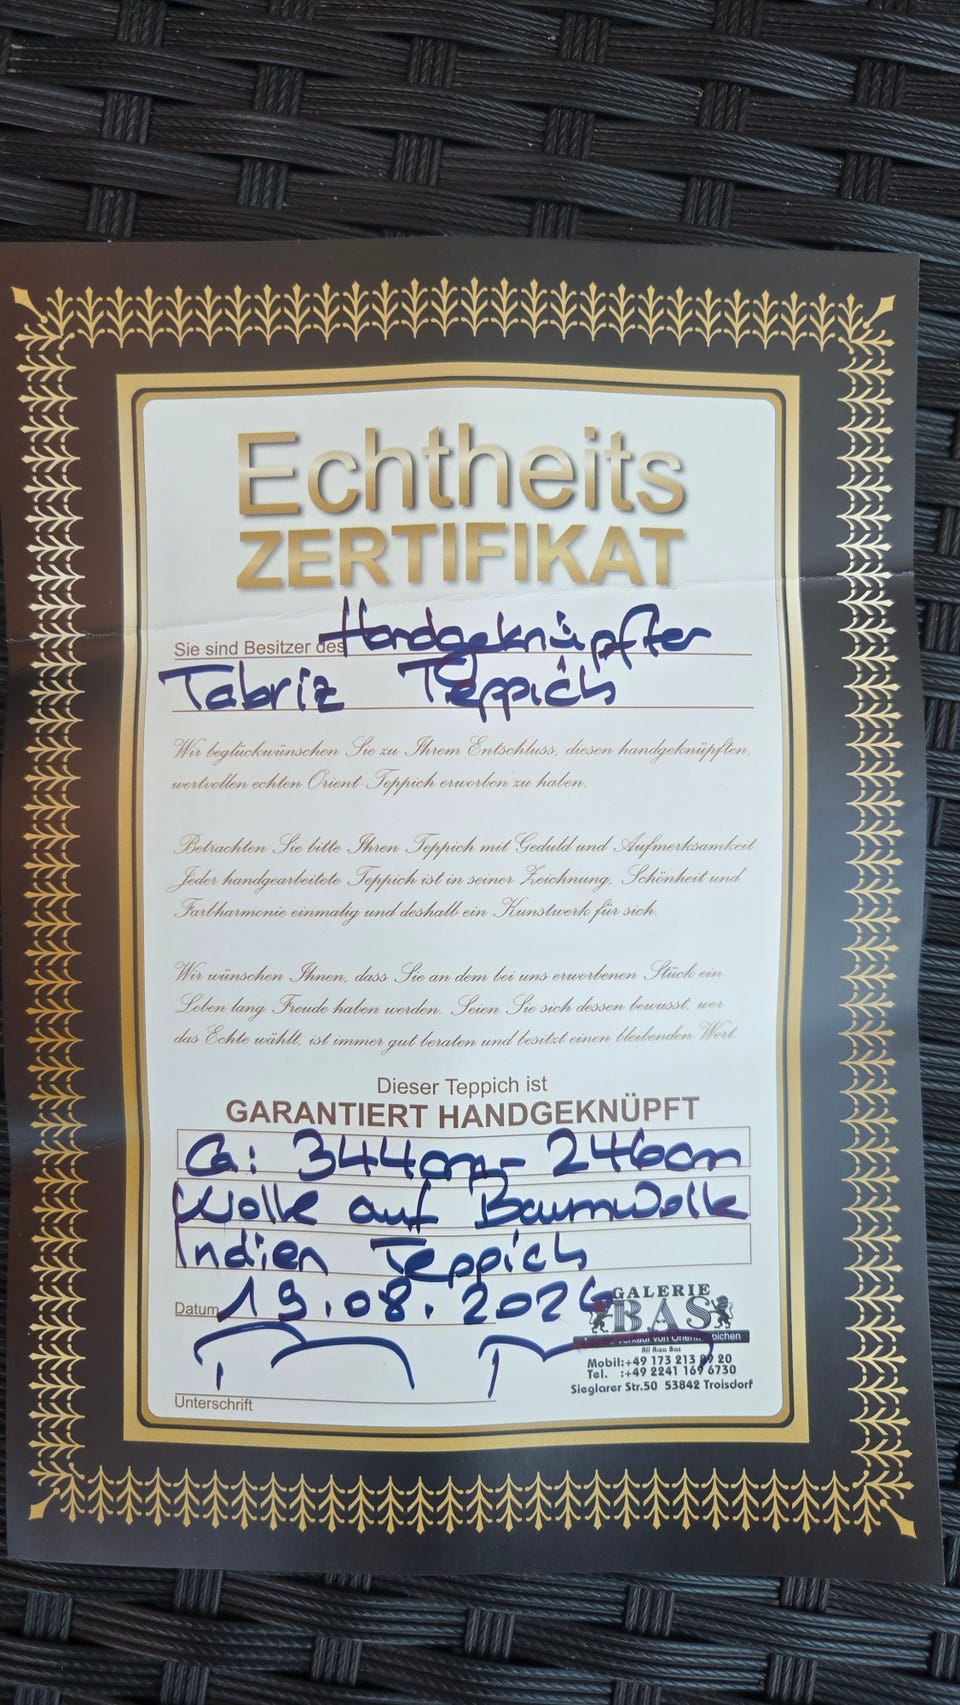 Echtheits
ZERTIFIKAT
Sie sind Besitzer des Handgeknüpfter
Tabriz Teppich
Wir beglückwünschen Sie zu Ihrem Entschluss, diesen handgeknüpften,
wertvollen echten Orient-Teppich erworben zu haben.
Betrachten Sie bitte Ihren Teppich mit Geduld und Aufmerksamkeit.
Jeder handgearbeitete Teppich ist in seiner Zeichnung, Schönheit und
Farbharmonie einmalig und deshalb ein Kunstwerk für sich.
Wir wünschen Ihnen, dass Sie an dem bei uns erworbenen Stück ein
Leben lang Freude haben werden. Seien Sie sich dessen bewusst, wer
das Echte wählt, ist immer gut beraten und besitzt einen bleibenden Wert.
Dieser Teppich ist
GARANTIERT HANDGEKNÜPFT
Ca: 344cm - 246cm
Wolle auf Baumwolle
Indien Teppich
Datum 19.08.202
GALERIE
BAS
verkauf von
Ali Rıza Bas
Mobil:+49 173 213 20
Tel. :+49 2241 169 6730
Sieglarer Str.50 53842 Troisdorf
Unterschrift